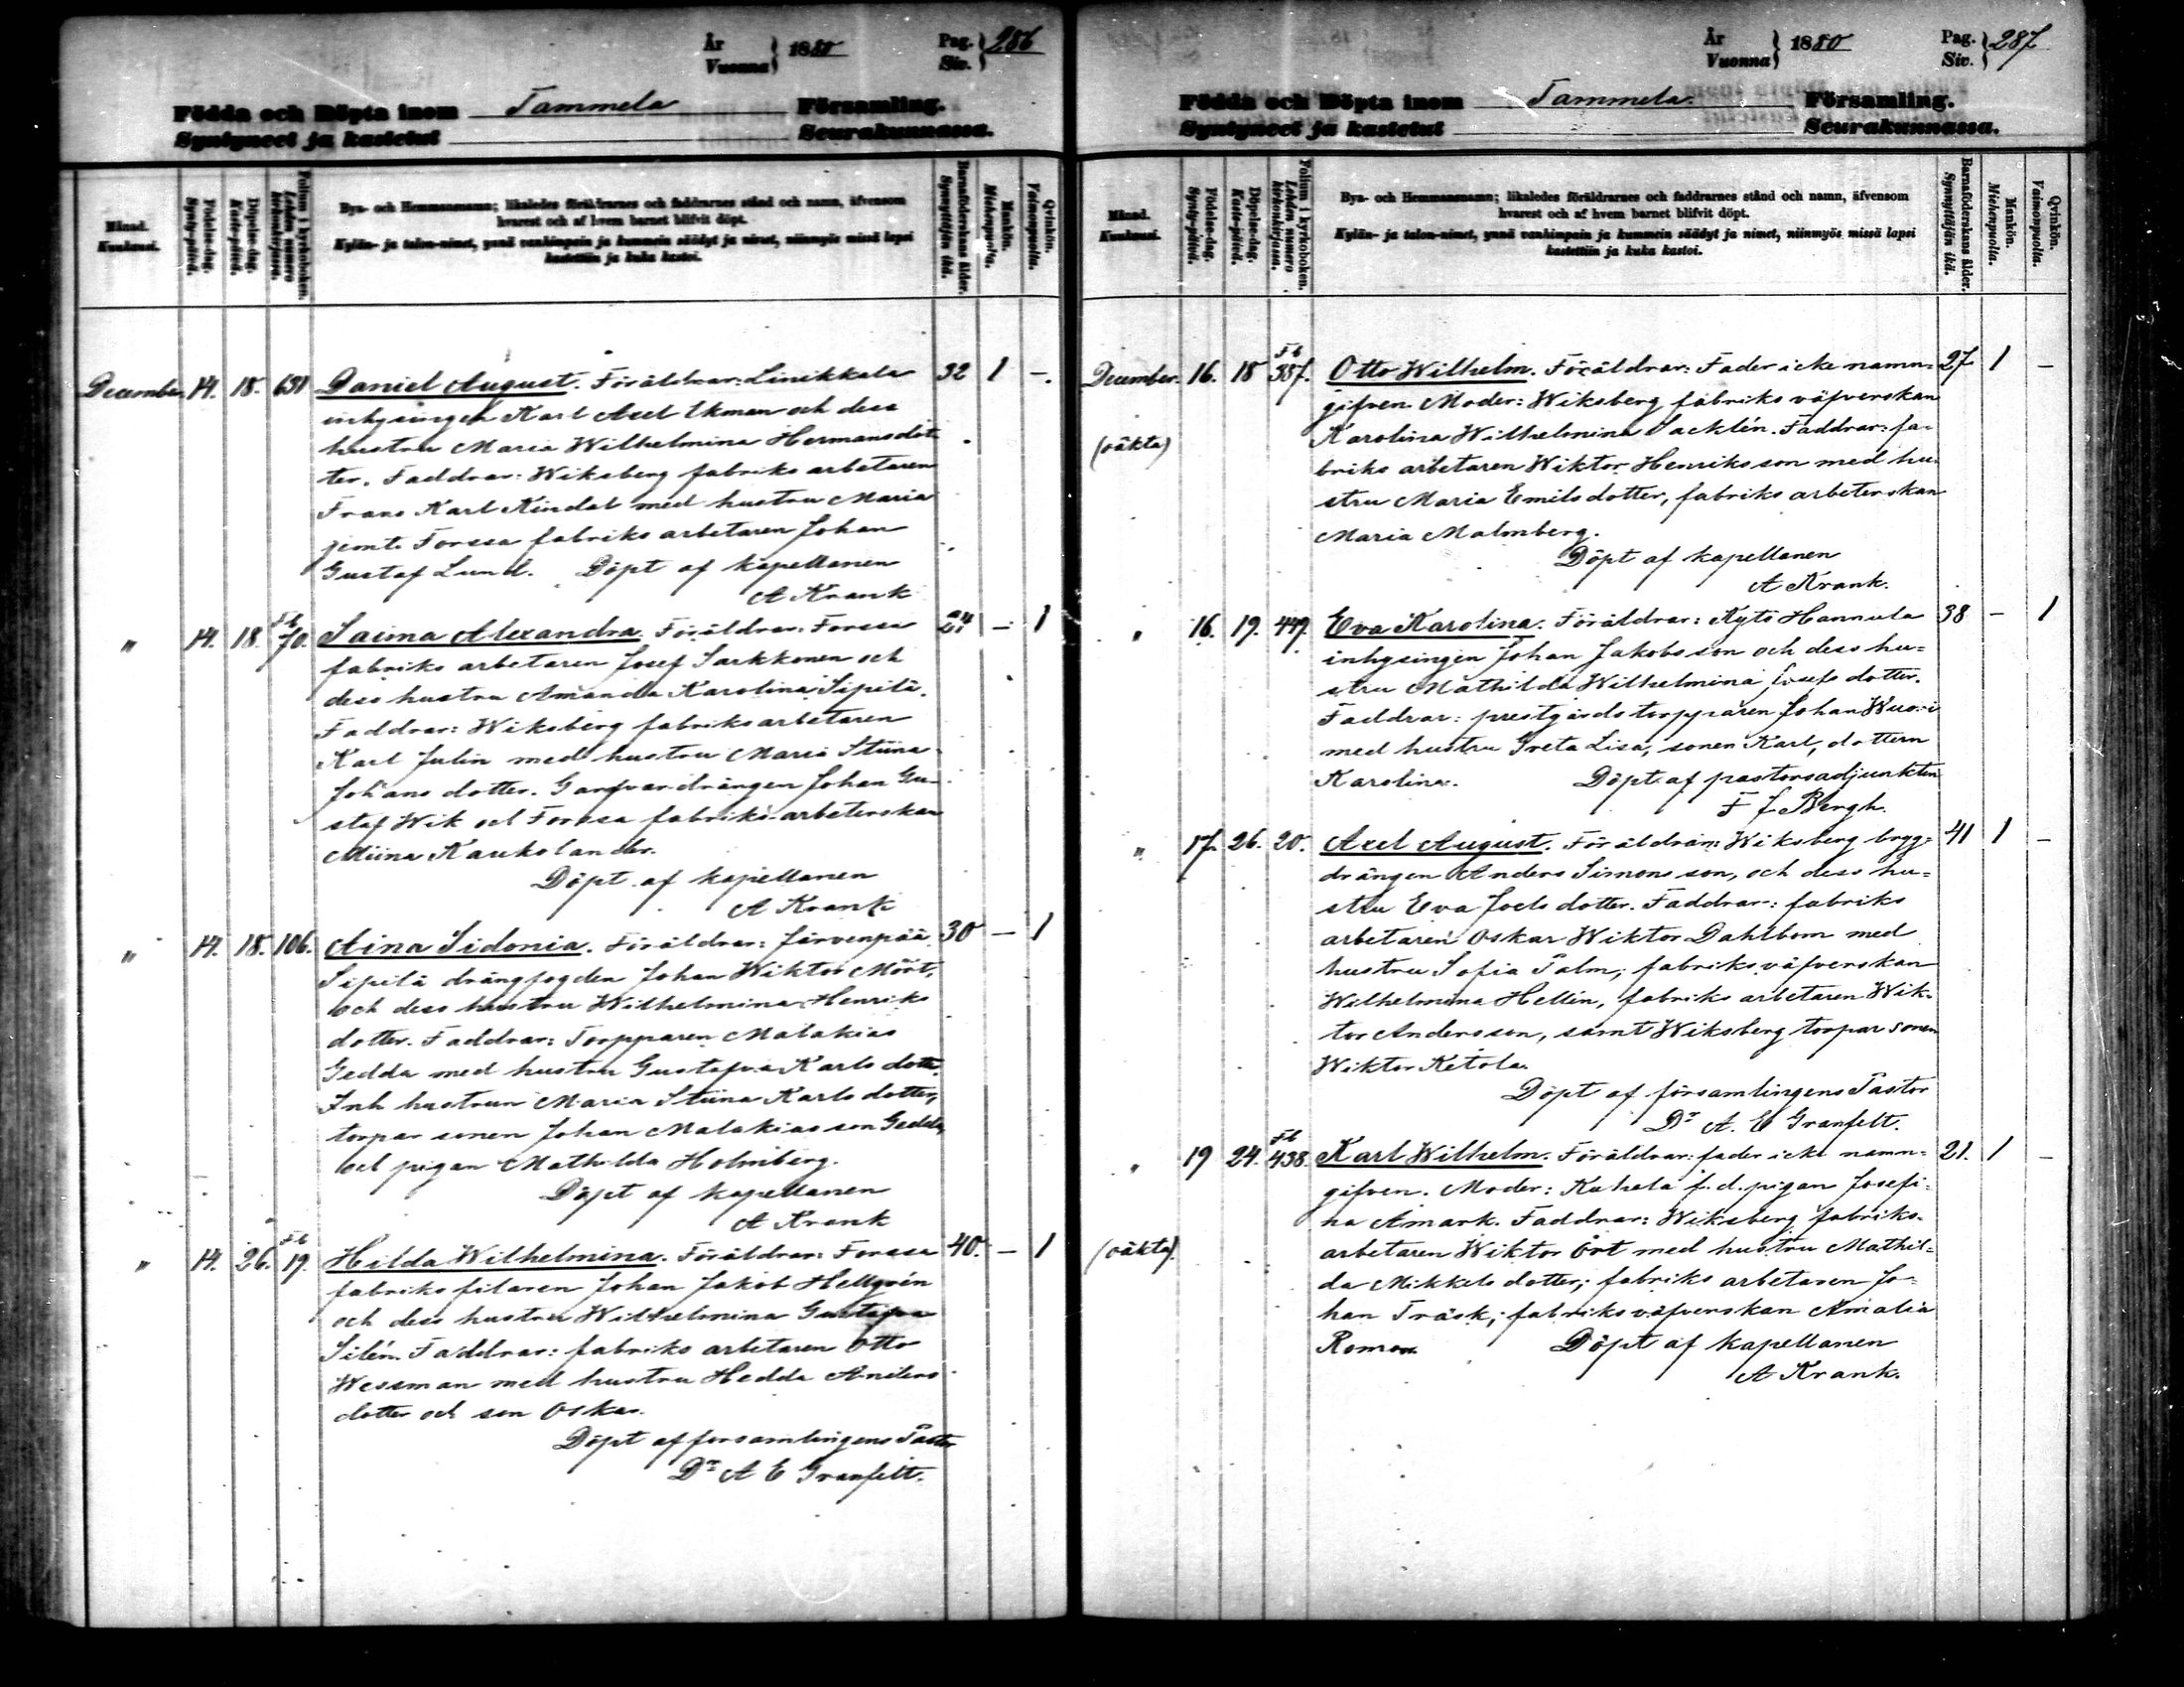 År
Vuonna } 1880
Pag.
Siv. } 286
Födda och Döpta inom Tammela Församling.
Syntyneet ja kastetut Seurakunnassa.
Månad.
Kuukausi.
Födelse-dag.
Synty-päivä.
Döpelse-dag.
Kaste-päivä.
Folium i kyrkoboken.
Lehden numero kirkonkirjassa.
Bya- och Hemmansnamn; likaledes föräldrarnes och faddrarnes stånd och namn, äfvensom
hvarest och af hvem barnet blifvit döpt.
Kylän- ja talon-nimet, ynnä vanhimpain ja kummein säädyt ja nimet, niinmyös missä lapsi
kastettiin ja kuka kastoi.
Barnaföderskans ålder.
Synnyttäjän ikä.
Mankön.
Miehenpuolta.
Qvinkön.
Vaimonpuolta.
December 14. 18. 631 Daniel August. Föräldrar: Linikkala 32 1 -
inhysingen Karl Axel Ekman och dess
hustru Maria Wilhelmina Hermansdot-
ter. Faddrar: Wiksberg fabriks arbetaren
Frans Karl Kindal med hustru Maria
jemte Forssa fabriks arbetaren Johan
Gustaf Lund. Döpt af kapellanen
A Krank
" 14. 18. Fb 70. Saima Alexandra. Föräldrar: Forssa - 1
fabriks arbetaren Josef Sarkkonen och
dess hustru Amanda Karolina Sipilä.
Faddrar: Wiksberg fabriksarbetaren
Karl Julin med hustru Maria Stiina
Johans dotter. Garfvardrängen Johan Gu-
staf Wik och Forssa fabriks-arbeterskan
Miina Kaukolander.
Döpt af kapellanen
A Krank
" 14. 18. 106. Aina Sidonia. Föräldrar: Järvenpää 30 - 1
Sipilä drängfogden Johan Wiktor Mört,
och dess hustru Wilhelmina Henriks
dotter. Faddrar: Torpparen Malakias
Gedda med hustru Gustafva Karls dotter.
Inh hustrun Maria Stiina Karls dotter,
torpar sonen Johan Malakias son Gedda,
och pigan Mathilda Holmberg.
Döpt af kapellanen
A Krank
" 14. 26. Fb 19. Hilda Wilhelmina. Föräldrar: Forssa 40. - 1
fabriks filaren Johan Jakob Hellgrén
och dess hustru Wilhelmina Gustafva
Silén. Faddrar: fabriks arbetaren Otto
Wessman med hustru Hedda Anders
dotter och son Oskar.
Döpt af församlingens Pastor
Dr A E Granfelt.
År
Vuonna } 1880
Pag.
Siv. } 287
Födda och Döpta inom Tammela. Församling.
Syntyneet ja kastetut Seurakunnassa.
Månad.
Kuukausi.
Födelse-dag.
Synty-päivä.
Döpelse-dag.
Kaste-päivä.
Folium i kyrkoboken.
Lehden numero kirkonkirjassa.
Bya- och Hemmansnamn; likaledes föräldrarnes och faddrarnes stånd och namn, äfvensom
hvarest och af hvem barnet blifvit döpt.
Kylän- ja talon-nimet, ynnä vanhimpain ja kummein säädyt ja nimet, niinmyös missä lapsi
kastettiin ja kuka kastoi.
Barnaföderskans ålder.
Synnyttäjän ikä.
Mankön.
Miehenpuolta.
Qvinkön.
Vaimonpuolta.
December. 16. 18 Fb 387. Otto Wilhelm. Föräldrar: Fader icke namn= 27 1 -
gifven. Moder: Wiksberg fabriks väfverskan
(oäkta) Karolina Wilhelmina Sacklén. Faddrar: fa-
briks arbetaren Wiktor Henriksson med hu-
stru Maria Emils dotter, fabriks arbeterskan
Maria Malmberg.
Döpt af kapellanen
A Krank.
" 16. 19. 449. Eva Karolina. Föräldrar: Kytö Hannula 38 - 1
inhysingen Johan Jakobsson och dess hu=
stru Mathilda Wilhelmina Josefs dotter.
Faddrar: prestgårds torpparen Johan Wuori
med hustru Greta Lisa, sonen Karl, dottern
Karolina. Döpt af pastorsadjunkten
F J Bergh.
" 17. 26. 20. Axel August. Föräldrar: Wiksberg bryg= 41 1 -
drängen Anders Simons son, och dess hu=
stru Eva Joels dotter. Faddrar: fabriks
arbetaren Oskar Wiktor Dahlbom med
hustru Sofia Palm; fabriksväfverskan
Wilhelmina Hellin, fabriks arbetaren Wik-
tor Andersson, samt Wiksberg torpar sonen
Wiktor Ketola.
Döpt af församlingens Pastor
Dr A. E Granfelt.
" 19 24. Fb 438. Karl Wilhelm. Föräldrar: fader icke namn= 21. 1 -
gifven. Moder: Kuhala f.d. pigan Josefi-
na Amark. Faddrar: Wiksberg fabriks-
(oäkta). arbetaren Wiktor Ört med hustru Mathil=
da Mikkels dotter; fabriks arbetaren Jo-
han Träsk; fabriksväfverskan Amalia
Roman Döpt af kapellanen
A Krank.